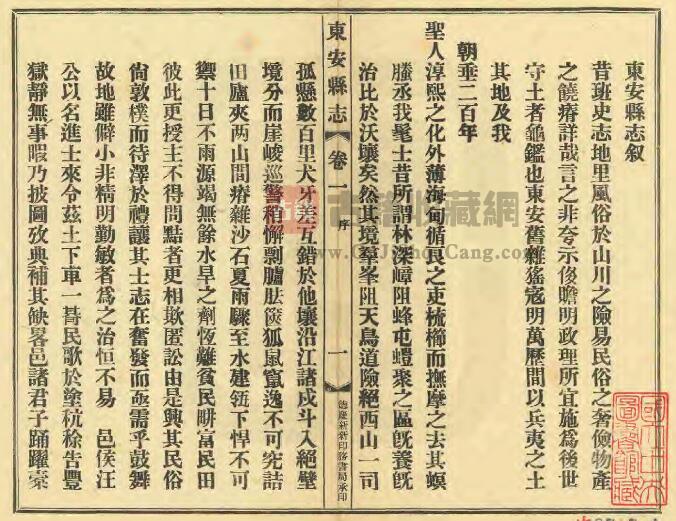 東安縣志叙
昔班史志地里風俗於山川之險易民俗之奢儉物產
之饒瘠詳哉言之非夸示俊瞻明政理所宜施為後世
守土者龜鑑也東安舊雜猺寇明萬歷間以兵夷之土
其地及我
朝垂二百年
聖人淳熙之化外薄海甸循良之吏梳櫛而撫摩之去其螟
螣丞我髦士昔所謂林深嶂阻蜂屯螘聚之區旣養旣
治比於沃壤矣然其境羣峯阻天鳥道險絕西山一司
孤懸數百里犬牙差互錯於他壤沿江諸戍斗入絕壁
境分而崖峻巡警稍懈剽臚胠篋狐鼠竄逸不可究詰
田廬夾两山間瘠雜沙石夏雨驟至水建瓴下悍不可
禦十日不雨源竭無餘水旱之劑恆離貧民畊富民田
彼此更授主不得問黠者更相欺匿訟由是興其民俗
尙敦樸而待澤於禮讓其士志在奮發而亟需乎鼓舞
故地雖僻小非精明勤敏者為之治恒不易 邑侯汪
公以名進士來令茲土下車一朞民歌於塗秔稌告豐
獄靜無事暇乃披圖攷典補其缺畧邑諸君子踴躍橐
東安縣志 卷一 序 一
德慶新新印務書局承印